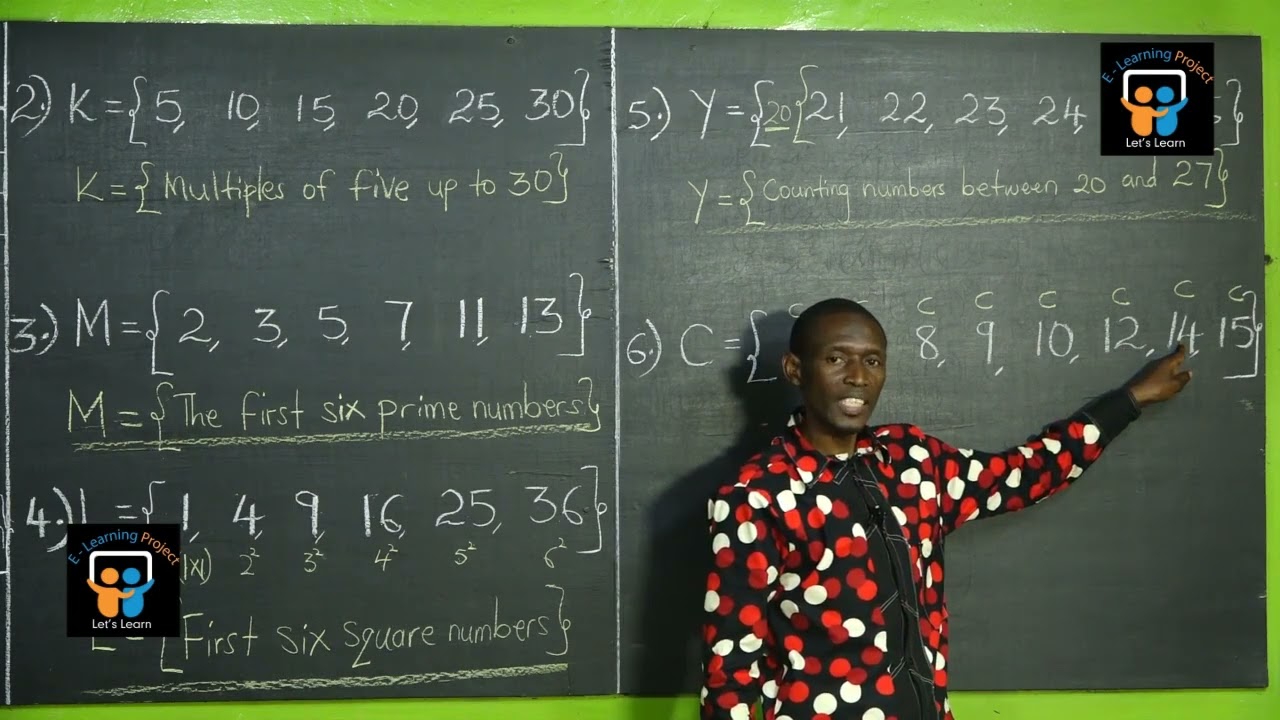 2.) K = {5, 10, 15, 20, 25, 30}
K = {Multiples of five up to 30}
3.) M = {2, 3, 5, 7, 11, 13}
M = {The first six prime numbers}
4.) L = {1, 4, 9, 16, 25, 36}
1x1) 2² 3² 4² 5² 6²
L = {First six square numbers}
E - Learning Project
Let's Learn
5.) Y = {20{21, 22, 23, 24,
Y = {Counting numbers between 20 and 27}
C C C C C C
6.) C = { 8, 9, 10, 12, 14, 15}
E - Learning Project
Let's Learn